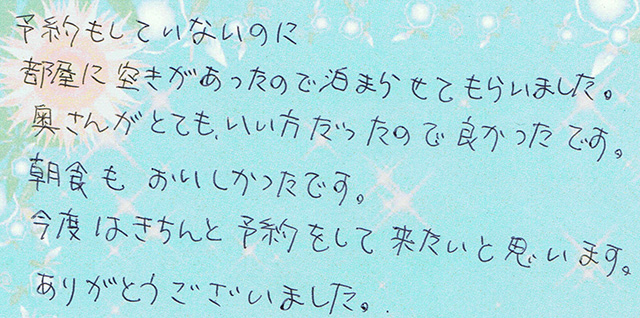 予約もしていないのに
部屋に空きがあったので泊まらせてもらいました。
奥さんがとても、いい方だったので良かったです。
朝食も おいしかったです。
今度はきちんと予約をして来たいと思います。
ありがとうございました。